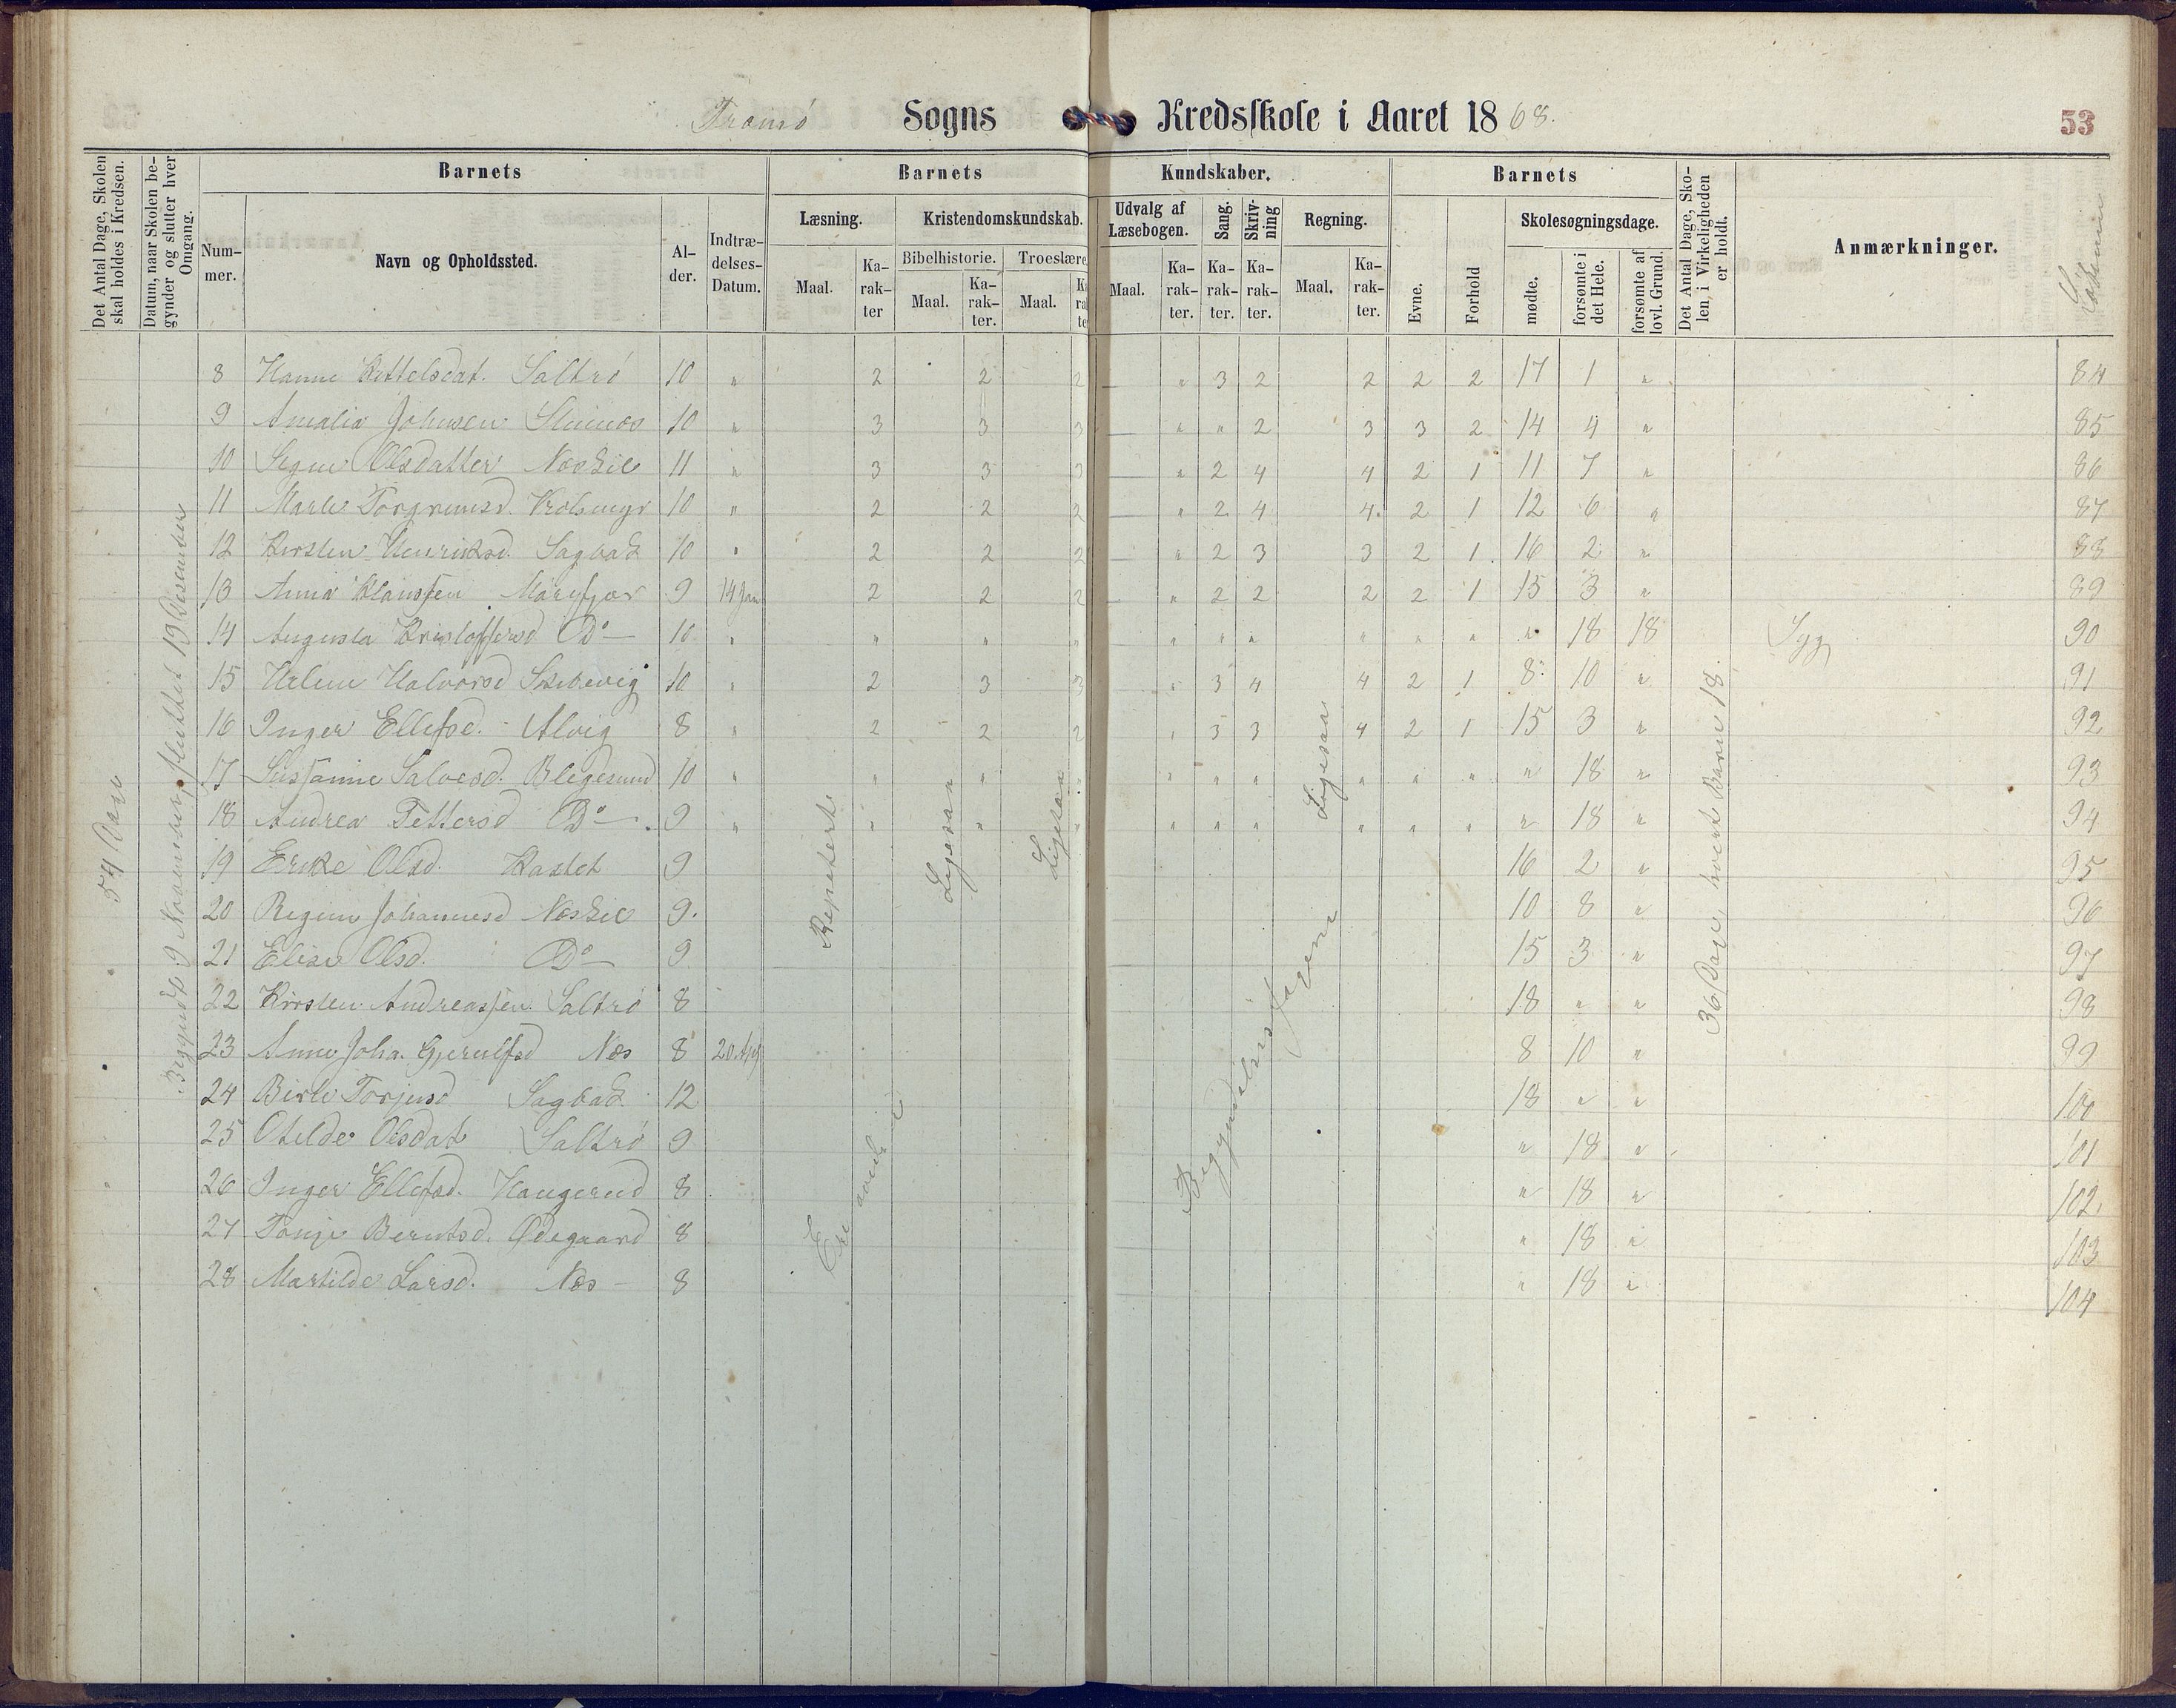 Tromø Sogns Kredsskole i Aaret 1868. 53
Det Antal Dage, Skolen skal holdes i Kredsen.
Datum, naar Skolen begynder og slutter hver Omgang.
Barnets
Nummer.
Navn og Opholdssted.
Alder.
Indtrædelses-Datum.
Barnets Kundskaber.
Læsning.
Maal.
Karakter
Kristendomskundskab.
Bibelhistorie.
Maal.
Karakter.
Troeslære
Maal.
Udvalg af Læsebogen.
Maal.
Karakter.
Sang.
Karakter.
Skrivning
Karakter.
Regning.
Maal.
Karakter.
Barnets
Evne.
Forhold
Skolesøgningsdage.
mødte.
forsømte i det Hele.
forsømte af lovl. Grund.
Det Antal Dage, Skolen i Virkeligheden er holdt.
Anmærkninger.
54 Dage
Begyndt 9 November, sluttet 19 Desember
8 Hanne Kittelsdat. Saltrø 10 " 2 2 2 " 3 2 2 2 2 17 1 " 84
9 Amalia Johnsen 10 " 3 3 3 " " 2 3 3 2 14 4 " 85
10 Signe Olsdatter Neskil 11 " 3 3 3 " 2 4 4 2 1 11 7 " 86
11 Marte Torgrimsd. 10 " 2 2 2 " 2 4 4. 2 1 12 6 " 87
12 Kirsten Henriksd. Sagbak 10 " 2 2 2 " 2 3 3 2 1 16 2 " 88
13 Anna Klaussen Marifjær 9 14 Jan 2 2 2 " 2 2 2 2 1 15 3 " 89
14 Augusta Kristoffersd Do 10 " " " " " " " " " " " 18 18 Syg 90
15 Helene Halvorsd Skibevig 10 " 2 3 3 " 3 4 4 2 1 8 10 " 91
16 Inger Ellefsd. Alvig 8 " 2 2 2 " 3 3 4 2 1 15 3 " 92
17 Sussanne Salvesd. Blegesund 10 " " " " " " " " " " " 18 " 93
18 Andrea Pettersd Do 9 " " " " " " " " " " " 18 " 94
19 Olsd. Kastet 9 16 2 " 95
20 Regine Johannesd Neskil 9. 10 8 " 96
21 Elise Olsd. Do 9 15 3 " 97
22 Kirsten Andreassen Saltrø 8 18 " " 98
23 Anne Joha. Gjerulfsd Nes 8 20 Apr 8 10 " 99
24 Birte Torjusd Sagbak 12 18 " " 100
25 Otilde Olsdat Saltrø 9 " 18 " 101
26 Inger Ellefsd. Haugerud 8 " 18 " 102
27 Tonje Berntsd. Ødegaard 8 " 18 " 103
28 Martilde Larsd. Nes 8 " 18 " 104
Repetert
Ligesaa
Ligesaa
Ligesaa
Begyndelsesfagene
36 Dage, hvert Barn 18.